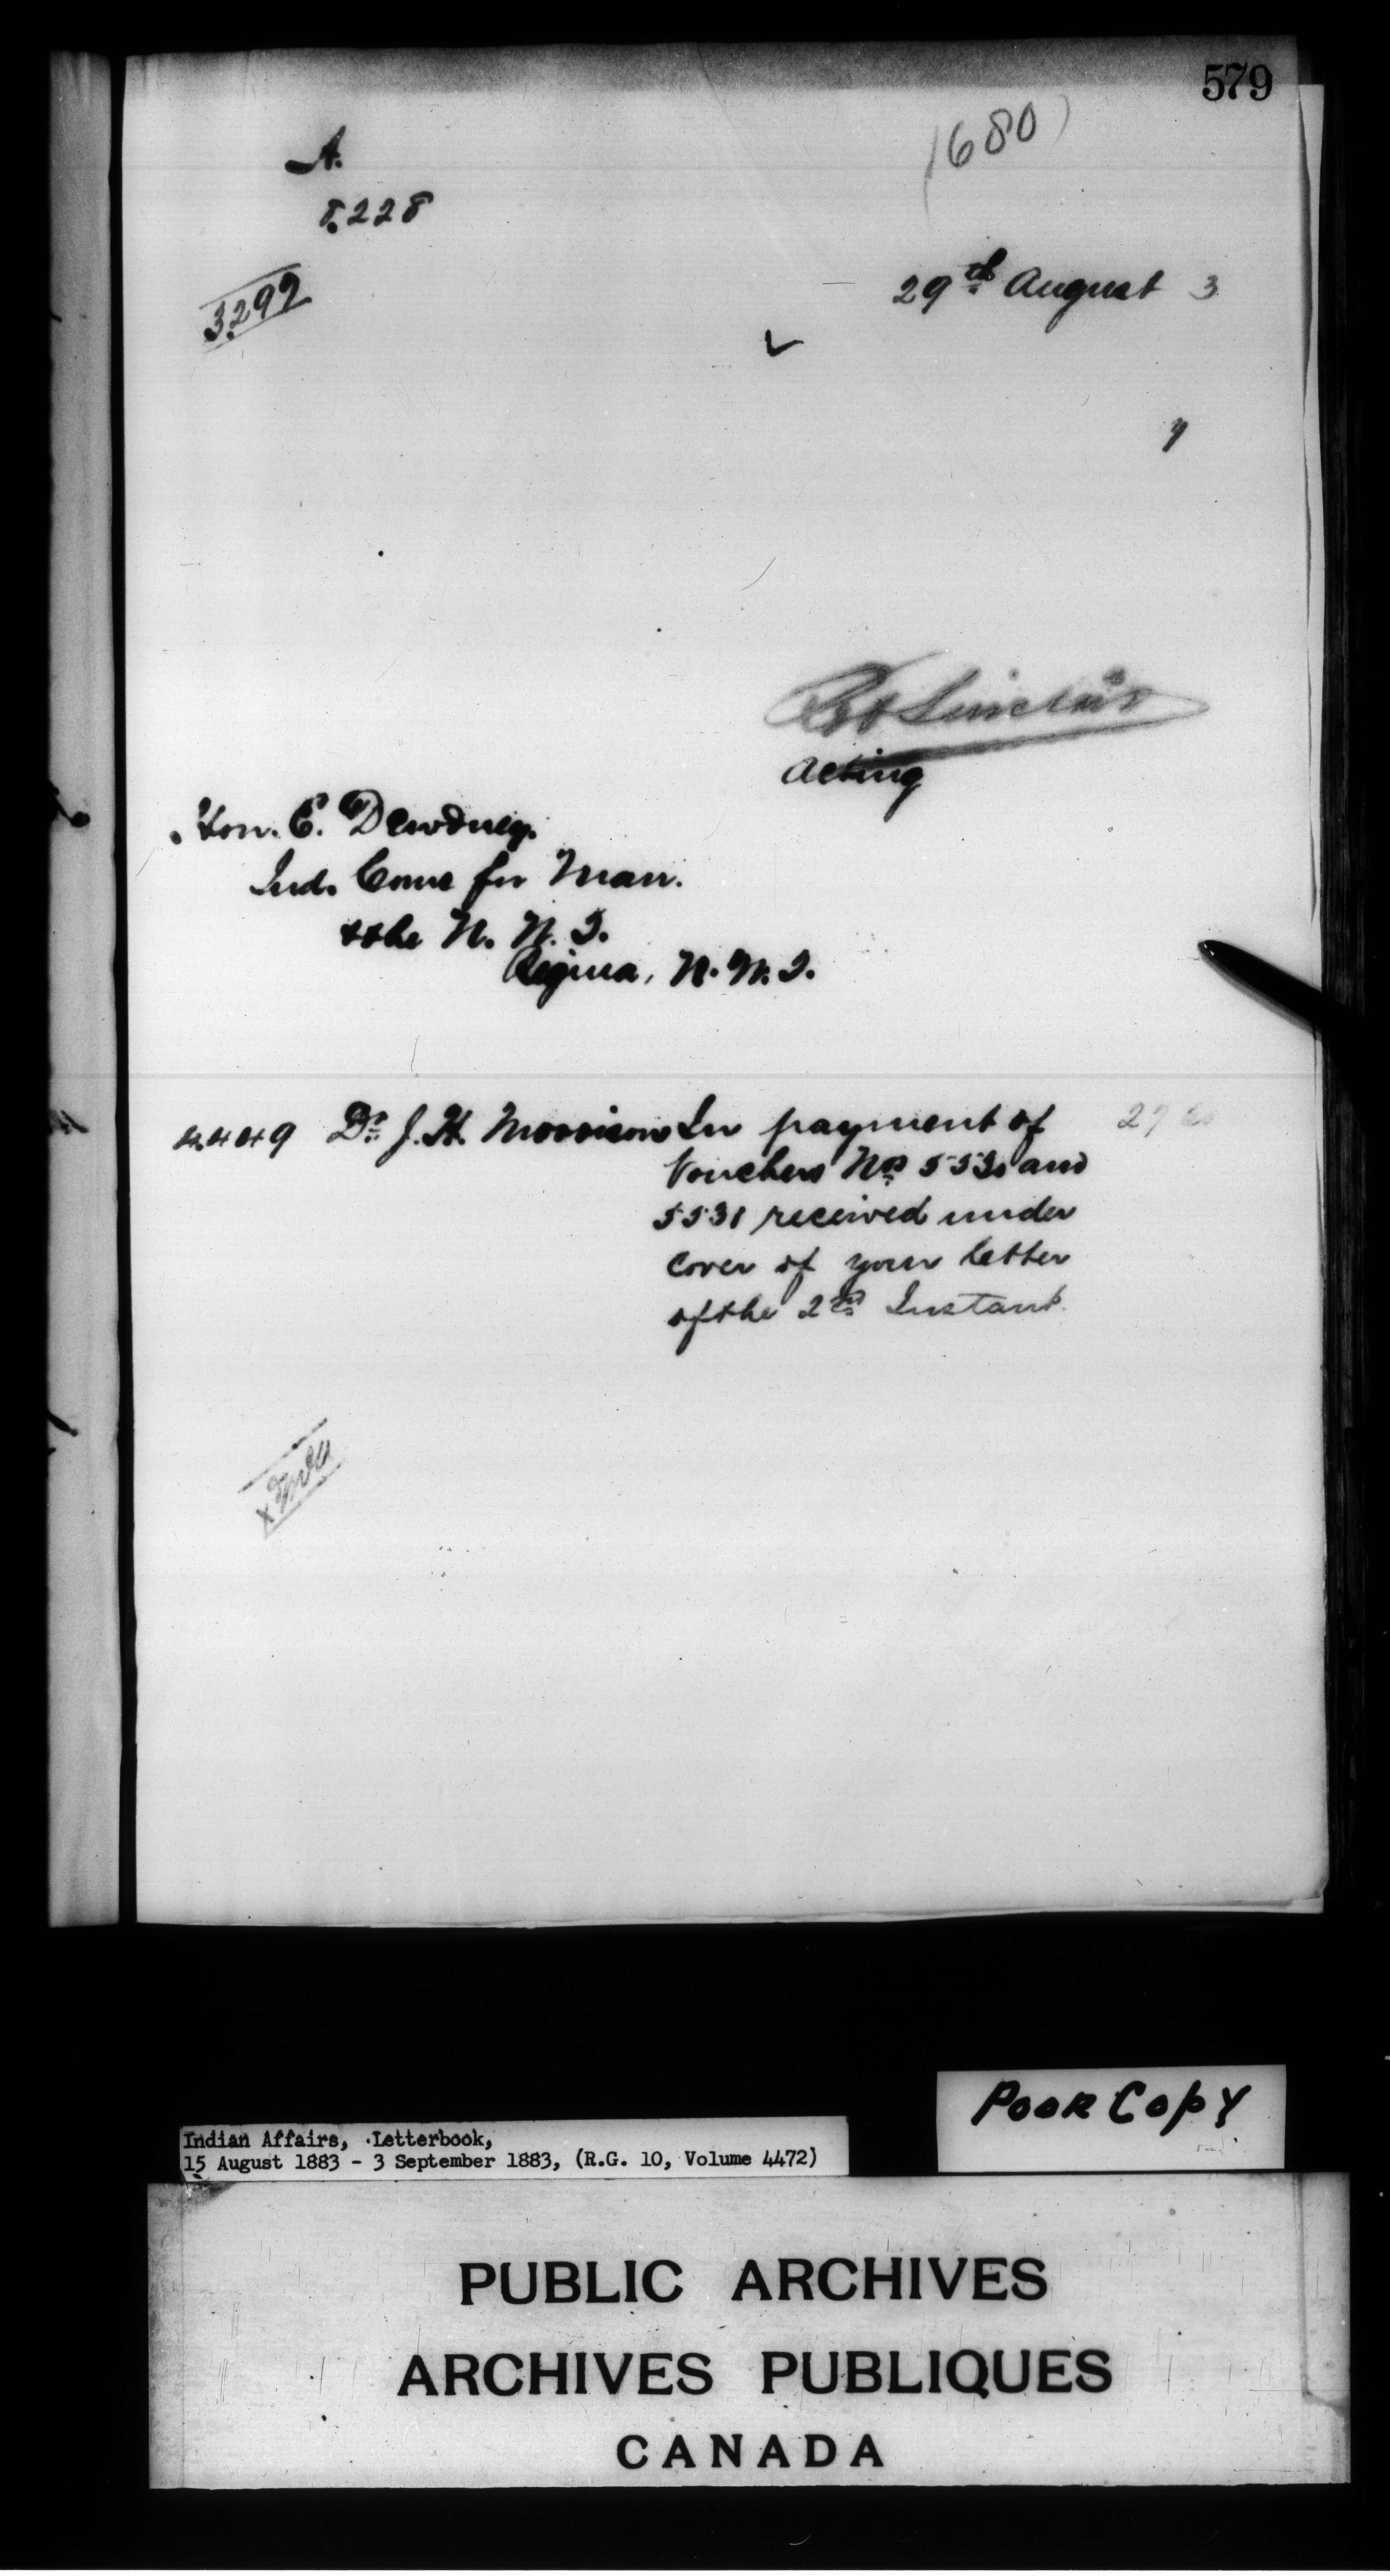 579
(680)
A.
8.228
3299
29th August 3
y
Rt Sinclair
Acting
Hon. E. Dewdney.
Ind. Comr for Man.
& the N. W. T.
Regina, N. W. T.
4.449 Dr. J. H. Morrison In payment of 27
Vouchers Nos 5530 and
5531 received under
cover of your letter
of the 2nd Instant.
Poor Copy
Indian Affairs, Letterbook,
15 August 1883 - 3 September 1883, (R.G. 10, Volume 4472)
PUBLIC ARCHIVES
ARCHIVES PUBLIQUES
CANADA